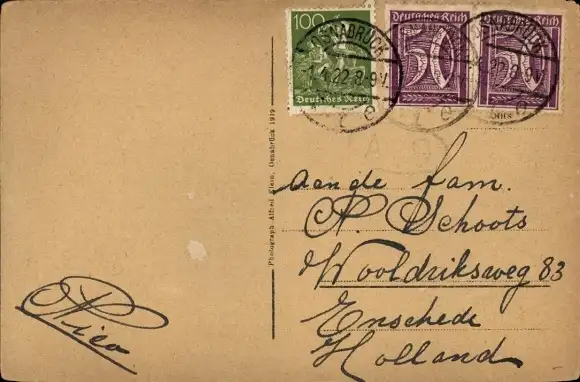 100
Deutsches Reich
Deutsches Reich
50
Deutsches Reich
50
OSNABRÜCK
1.4.22.8-9V.
Photograph Alfred Klein, Osnabrück 1919
aan de fam.
P. Schoots
Wooldriksweg 83
Enschede
Holland
Nico